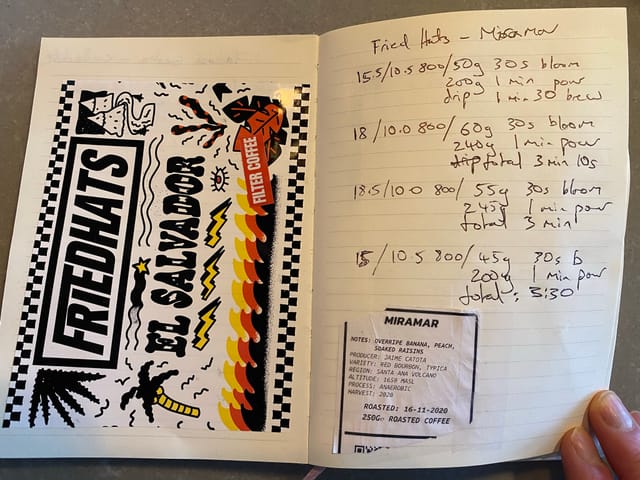 FRIEDHATS
EL SALVADOR
FILTER COFFEE
Fried Hats - Miramar
15.5/10.5 800/50g 30s bloom
200g 1 min pour
drip 1 min 30 brew
18/10.0 800/60g 30s bloom
240g 1 min pour
total 3 min 10s
18.5/10.0 800/55g 30s bloom
245g 1 min pour
total 3 min
15/10.5 800/45g 30s b
200g 1 min pour
total: 3:30
MIRAMAR
NOTES: OVERRIPE BANANA, PEACH,
SOAKED RAISINS
PRODUCER: JAIME CATOTA
VARIETY: RED BOURBON, TYPICA
REGION: SANTA ANA VOLCANO
ALTITUDE: 1650 MASL
PROCESS: ANAEROBIC
HARVEST: 2020
ROASTED: 16-11-2020
250G. ROASTED COFFEE